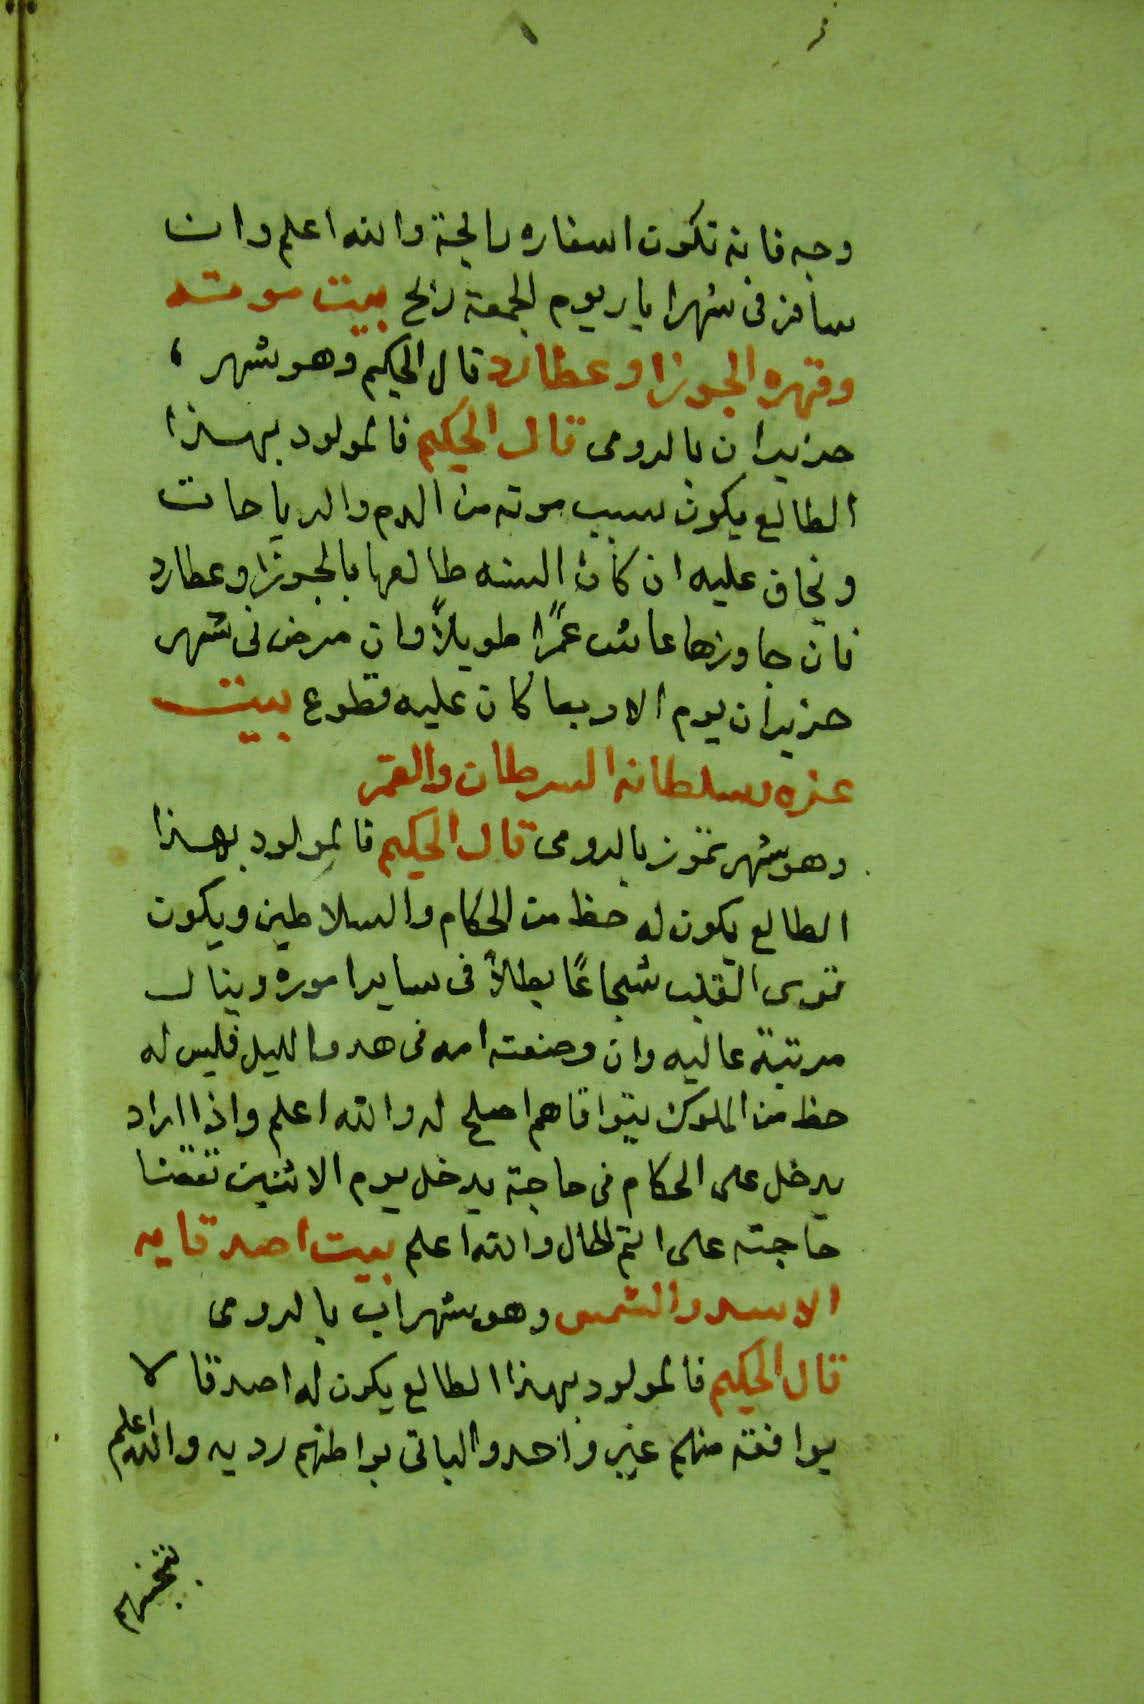 وجه فانه تكون اسفاره رابحة والله اعلم وان
سافر فى شهر ايار يوم الجمعة ربح بيت موته
وقهره الجوزا وعطارد قال الحكيم وهو شهر
حزيران بالرومى قال الحكيم فالمولود بهذا
الطالع يكون سبب موته من الدم والرياحات
ونخاف عليه ان كان السنه طالعها بالجوزا وعطارد
فان جاوزها عاش عمرًا طويلاً وان مرض فى شهر
حزيران يوم الاربعا كان عليه قطوع بيت
عزه وسلطانه السرطان والقمر
وهو شهر تموز بالرومى قال الحكيم فالمولود بهذا
الطالع يكون له حظ من الحكام والسلاطين ويكون
قوى القلب شجاعًا بطلاً فى ساير اموره وينال
مرتبة عاليه وان وضعته امه فى هدو الليل فليس له
حظ من الملوك يتواقاهم اصلح له والله اعلم واذا اراد
يدخل على الحكام فى حاجة يدخل يوم الاثنين تقضا
حاجته على اتم الحال والله اعلم بيت اصدقايه
الاسد والشمس وهو شهر اب بالرومى
قال الحكيم فالمولود بهذا الطالع يكون له اصدقا لا
يوافقه منهم غير واحد والباقى بواطنهم رديه والله اعلم